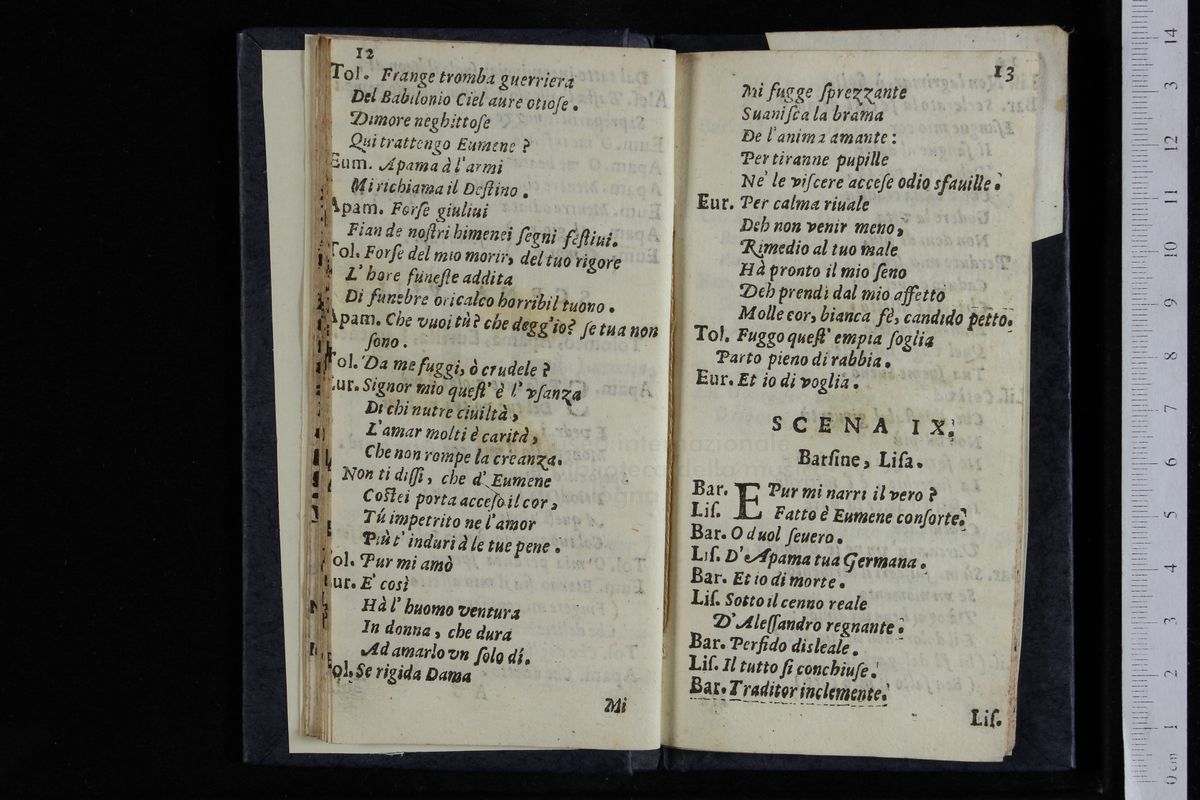 12
Tol. Frange tromba guerriera
Del Babilonio Ciel aure otiose.
Dimore neghittose
Qui trattengo Eumene?
Eum. Apama à l'armi
Mi richiama il Destino.
Apam. Forſe giuliui
Fian de noſtri himenei ſegni feſtiui.
Tol. Forſe del mio morir, del tuo rigore
L'hore funeſte addita
Di funebre oricalco horribil tuono.
Apam. Che vuoi tù? che degg'io? ſe tua non
ſono.
Tol. Da me fuggi, ò crudele?
Eur. Signor mio queſt' è l' vſanza
Di chi nutre ciuiltà,
L'amar molti è carità,
Che non rompe la creanza.
Non ti diſſi, che d'Eumene
Coſtei porta acceſo il cor,
Tú impetrito ne l'amor
Più t' induri à le tue pene.
Tol. Pur mi amò
Eur. E' così
Hà l' huomo ventura
In donna, che dura
Ad amarlo vn ſolo dí.
Tol. Se rigida Dama
Mi
13
Mi fugge ſprezzante
Suaniſca la brama
De l'anima amante:
Per tiranne pupille
Ne' le viſcere acceſe odio sfauille.
Eur. Per calma riuale
Deh non venir meno,
Rimedio al tuo male
Hà pronto il mio ſeno
Deh prendi dal mio affetto
Molle cor, bianca fè, candido petto.
Tol. Fuggo queſt' empia ſoglia
Parto pieno di rabbia.
Eur. Et io di voglia.
SCENA IX.
Barſine, Liſa.
Bar. E Pur mi narri il vero?
Liſ. Fatto è Eumene conſorte.
Bar. O duol ſeuero.
Liſ. D'Apama tua Germana.
Bar. Et io di morte.
Liſ. Sotto il cenno reale
D'Aleſſandro regnante.
Bar. Perfido disleale.
Liſ. Il tutto ſi conchiuſe.
Bar. Traditor inclemente.
Liſ.